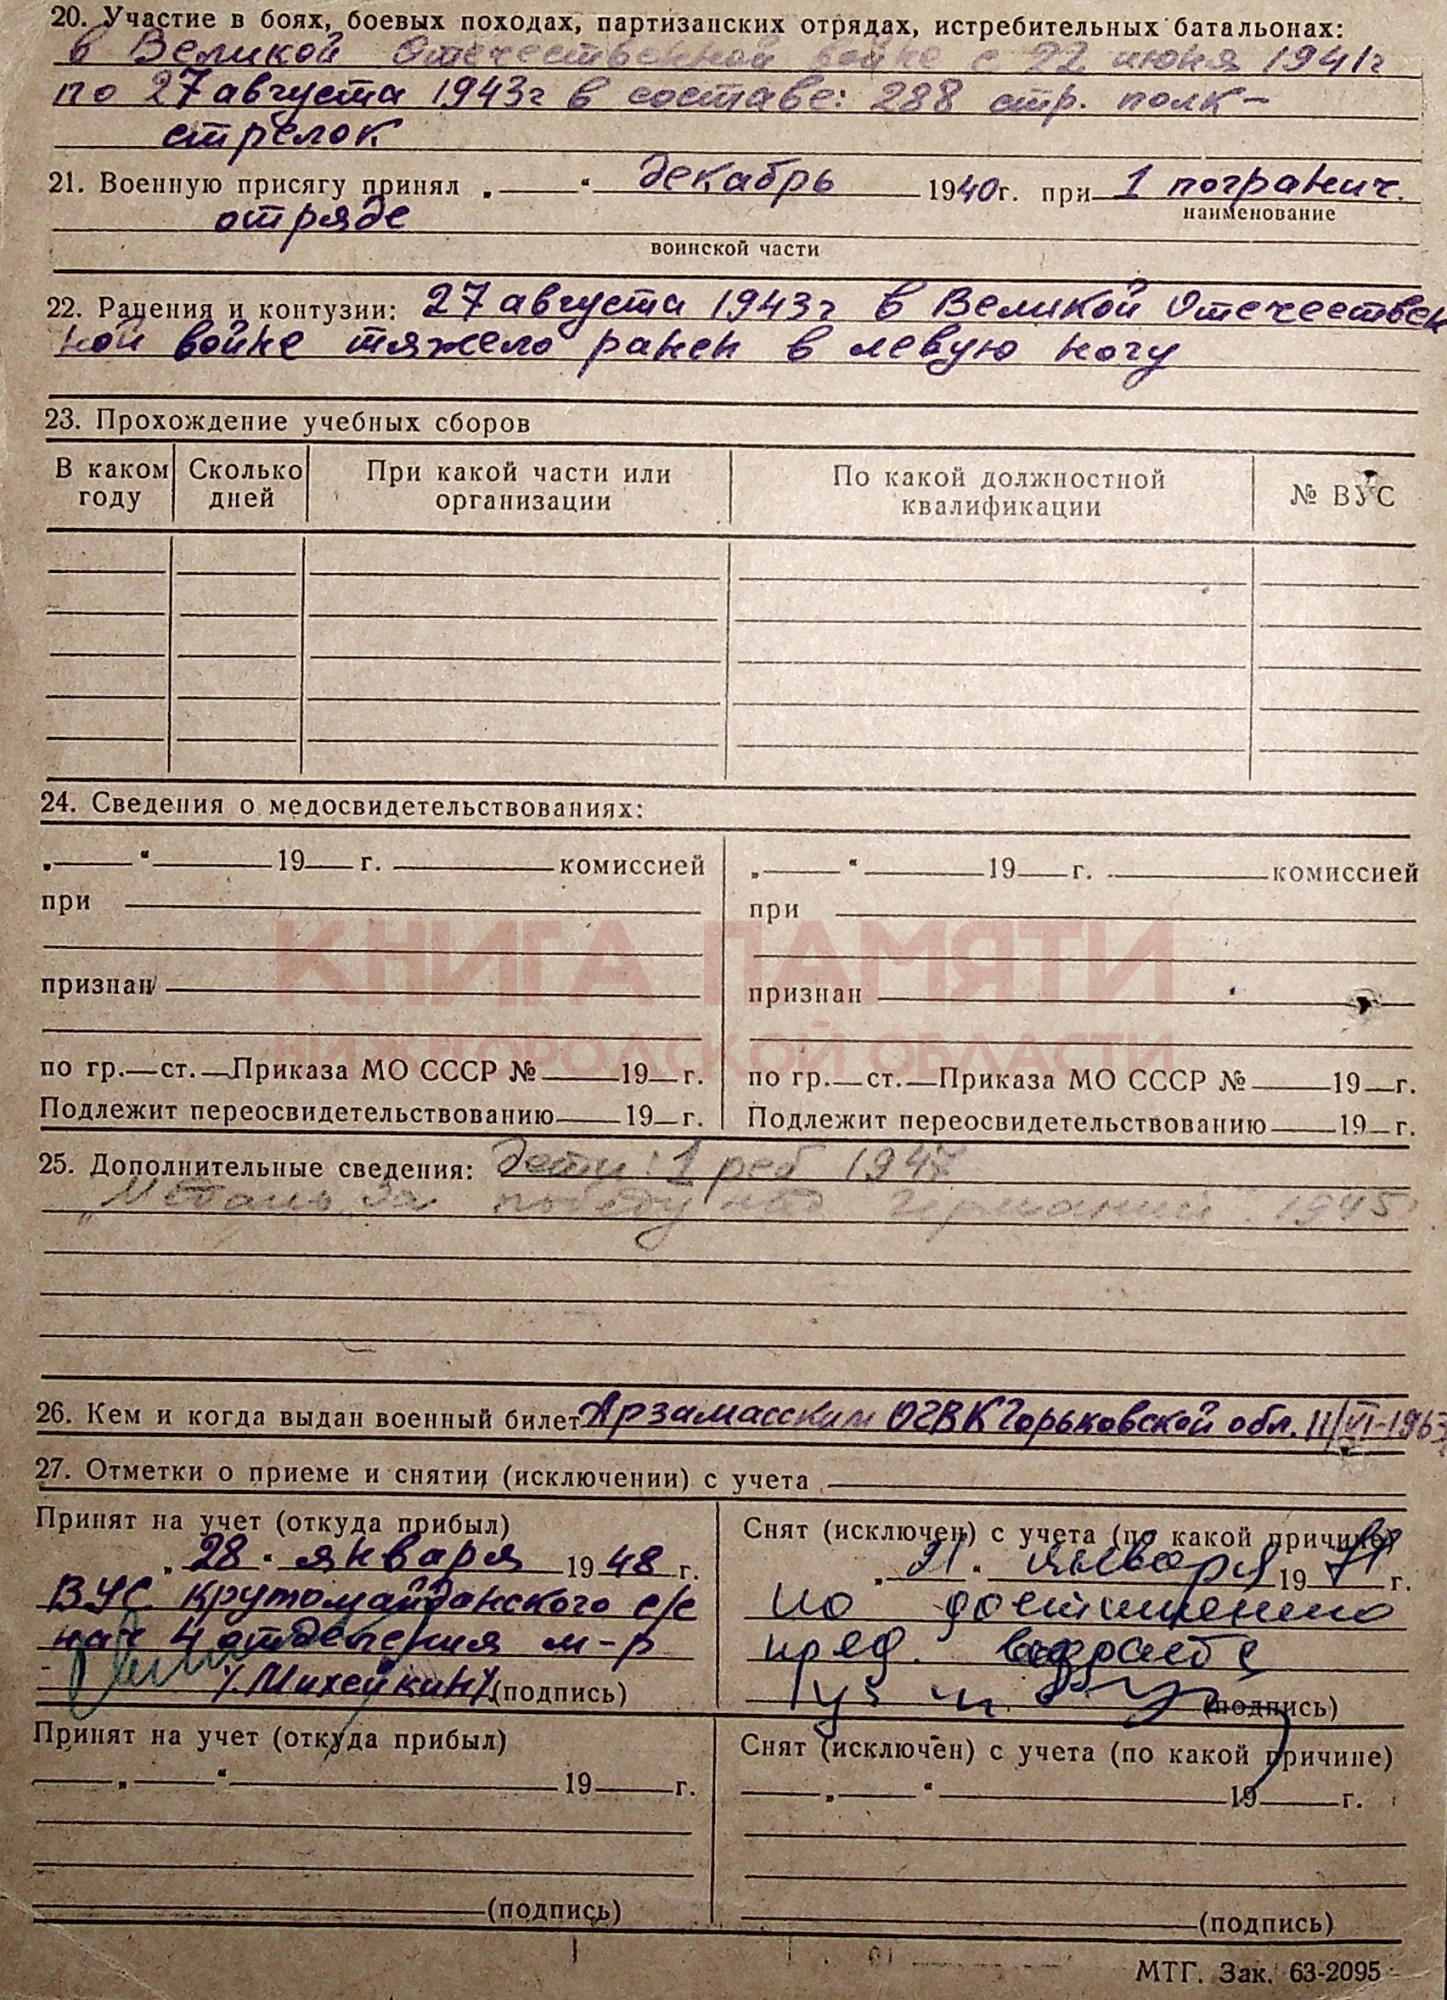 20. Участие в боях, боевых походах, партизанских отрядах, истребительных батальонах:
в Великой Отечественной войне с 22 июня 1941г
по 27 августа 1943г в составе: 288 стр. полк-
стрелок
21. Военную присягу принял „ “ декабрь 1940г. при 1 погранич.
наименование
отряде
воинской части
22. Ранения и контузии: 27 августа 1943г в Великой Отечествен
ной войне тяжело ранен в левую ногу
23. Прохождение учебных сборов
В каком году Сколько дней При какой части или организации По какой должностной квалификации № ВУС
24. Сведения о медосвидетельствованиях:
„ “ 19 г. комиссией „ “ 19 г. комиссией
при при
КНИГА ПАМЯТИ
признан признан
НИЖЕГОРОДСКОЙ ОБЛАСТИ
по гр. ст. Приказа МО СССР № 19 г. по гр. ст. Приказа МО СССР № 19 г.
Подлежит переосвидетельствованию 19 г. Подлежит переосвидетельствованию 19 г.
25. Дополнительные сведения: Дети: 1 реб 1947
„Медаль За победу над Германией" 1945
26. Кем и когда выдан военный билет Арзамасским ОГВК Горьковской обл. 11/VI-1963
27. Отметки о приеме и снятии (исключении) с учета
Принят на учет (откуда прибыл)
„28“ января 1948 г.
ВУС Крутомайданского с/с
нач 4 отделения м-р
/. Михейкин/ (подпись)
Снят (исключен) с учета (по какой причине)
„ “ января 19 г.
по достижению
пред. возраста
(подпись)
Принят на учет (откуда прибыл)
„ “ 19 г.
(подпись)
Снят (исключен) с учета (по какой причине)
„ “ 19 г.
(подпись)
МТГ. Зак. 63-2095